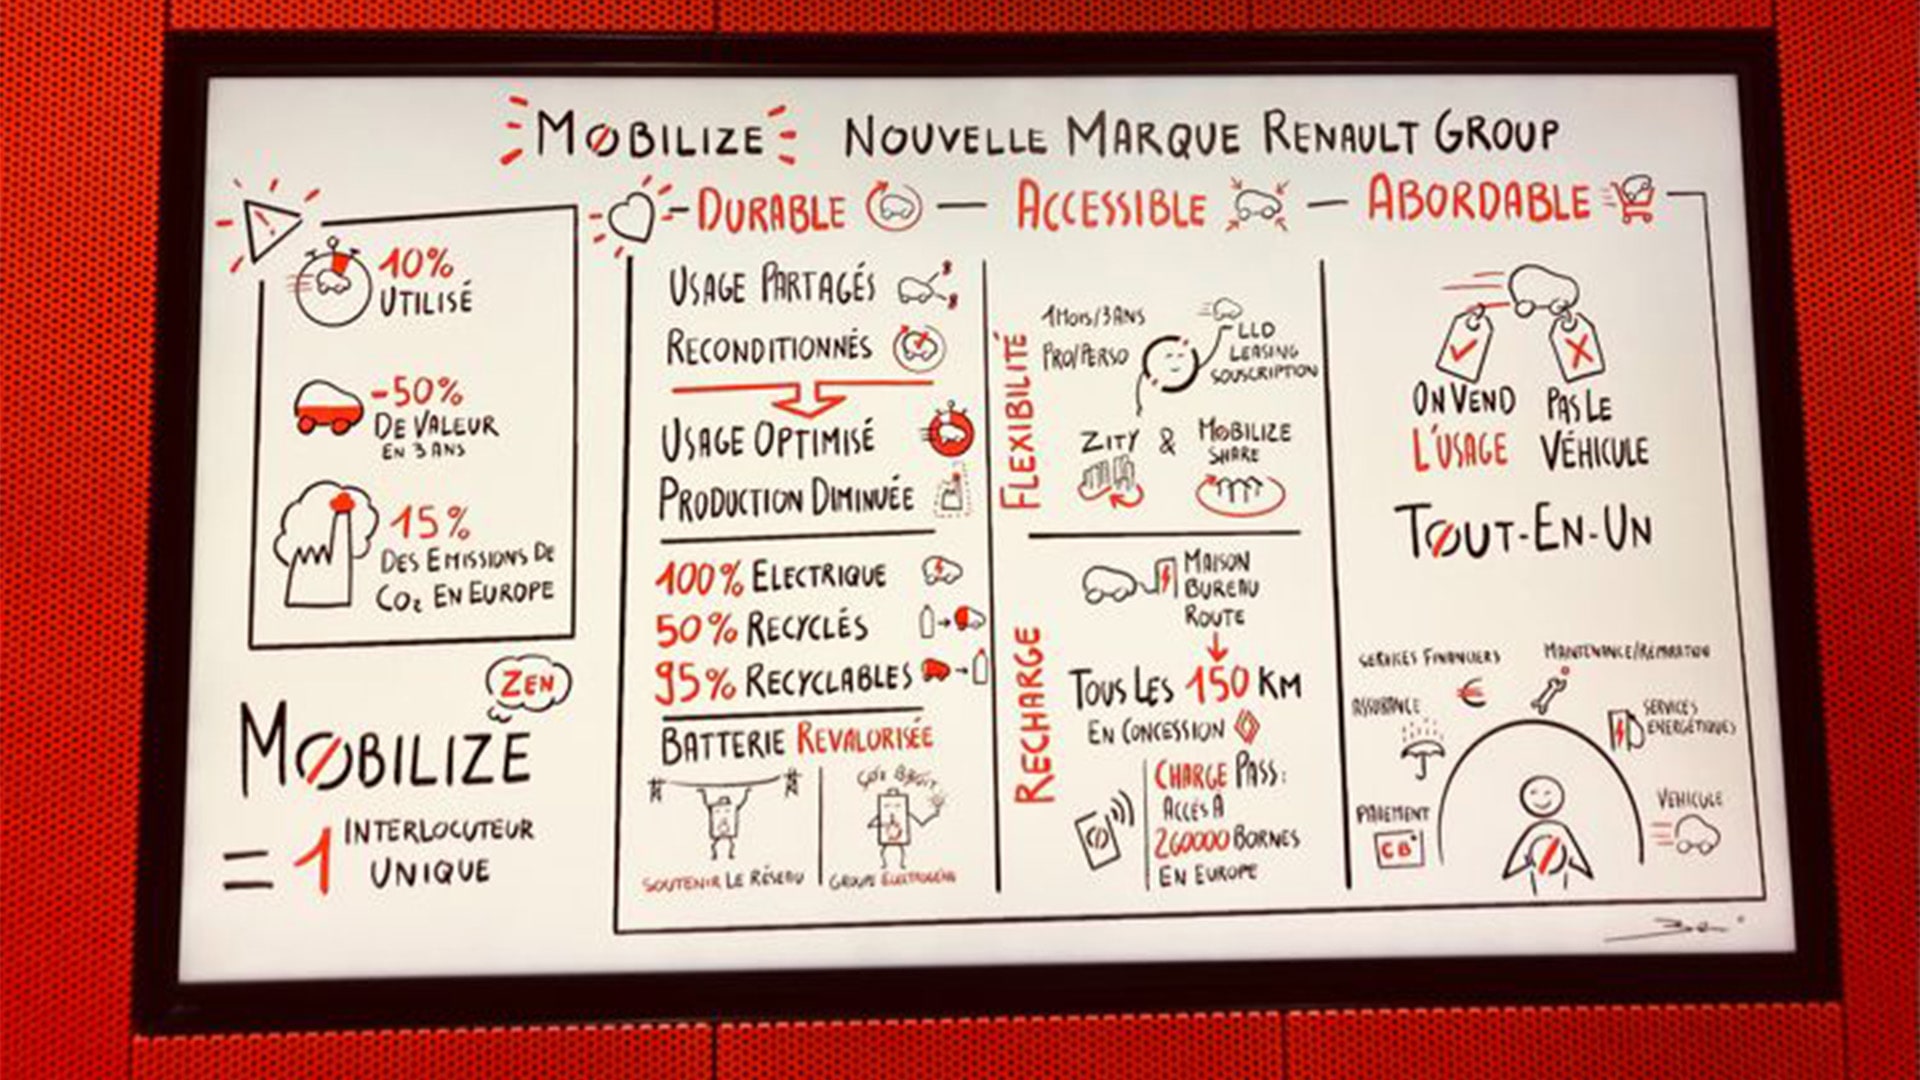 MOBILIZE NOUVELLE MARQUE RENAULT GROUP
DURABLE — ACCESSIBLE — ABORDABLE
10%
UTILISÉ
-50%
DE VALEUR
EN 3 ANS
15%
DES EMISSIONS DE
CO₂ EN EUROPE
ZEN
MOBILIZE
= 1 INTERLOCUTEUR
UNIQUE
USAGE PARTAGÉS
RECONDITIONNÉS
USAGE OPTIMISÉ
PRODUCTION DIMINUÉE
100% ELECTRIQUE
50% RECYCLÉS
95% RECYCLABLES
BATTERIE REVALORISÉE
SOUTENIR LE RÉSEAU
GROUPE ÉLECTROGÈNE
FLEXIBILITÉ
1 MOIS/3 ANS
PRO/PERSO
LLD
LEASING
SOUSCRIPTION
ZITY & MOBILIZE
SHARE
RECHARGE
MAISON
BUREAU
ROUTE
TOUS LES 150 KM
EN CONCESSION
CHARGE PASS:
ACCÈS A
260000 BORNES
EN EUROPE
ON VEND
L'USAGE
PAS LE
VÉHICULE
TOUT-EN-UN
SERVICES FINANCIERS
MAINTENANCE/RÉPARATION
ASSURANCE
€
SERVICES
ENERGÉTIQUES
PAIEMENT
CB
VEHICULE